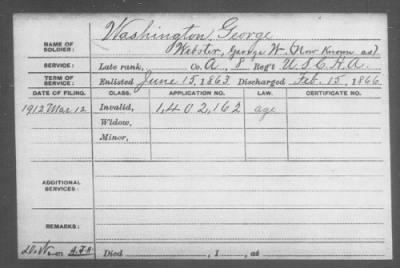 Washington, George
NAME OF SOLDIER: Webster, George W. (Now Known as)
SERVICE: Late rank, Co. A, 8 Reg't U.S.C.H.A.
TERM OF SERVICE: Enlisted June 15, 1863 Discharged Feb. 15, 1866
DATE OF FILING. CLASS. APPLICATION NO. LAW. CERTIFICATE NO.
1912 Mar 12 Invalid, 1,402,162 age
Widow,
Minor,
ADDITIONAL SERVICES:
REMARKS:
Died , 1 , at